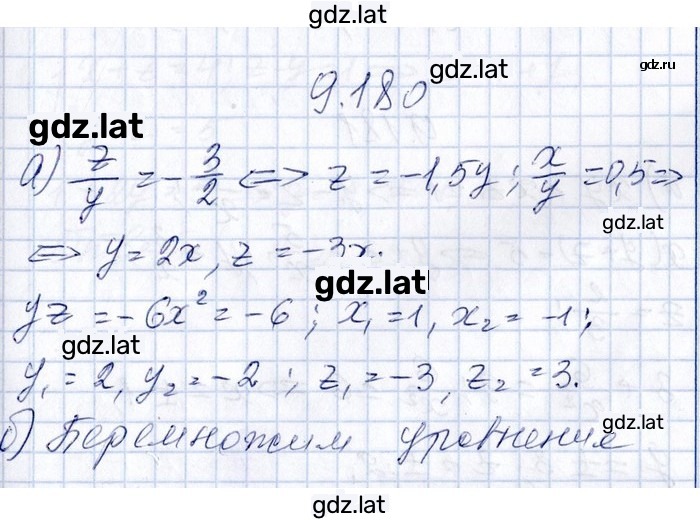 gdz.lat
gdz.ru
9.180
gdz.lat
gdz.lat
а) z/y = -3/2 ⇔ z = -1,5y; x/y = 0,5 ⇒
gdz.lat
⇔ y = 2x, z = -3x.
gdz.lat
yz = -6x² = -6; x₁ = 1, x₂ = -1;
gdz.lat
y₁ = 2, y₂ = -2; z₁ = -3, z₂ = 3.
gdz.lat
б) Перемножим уравнение
gdz.lat